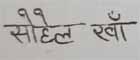 सोहेल खाँ